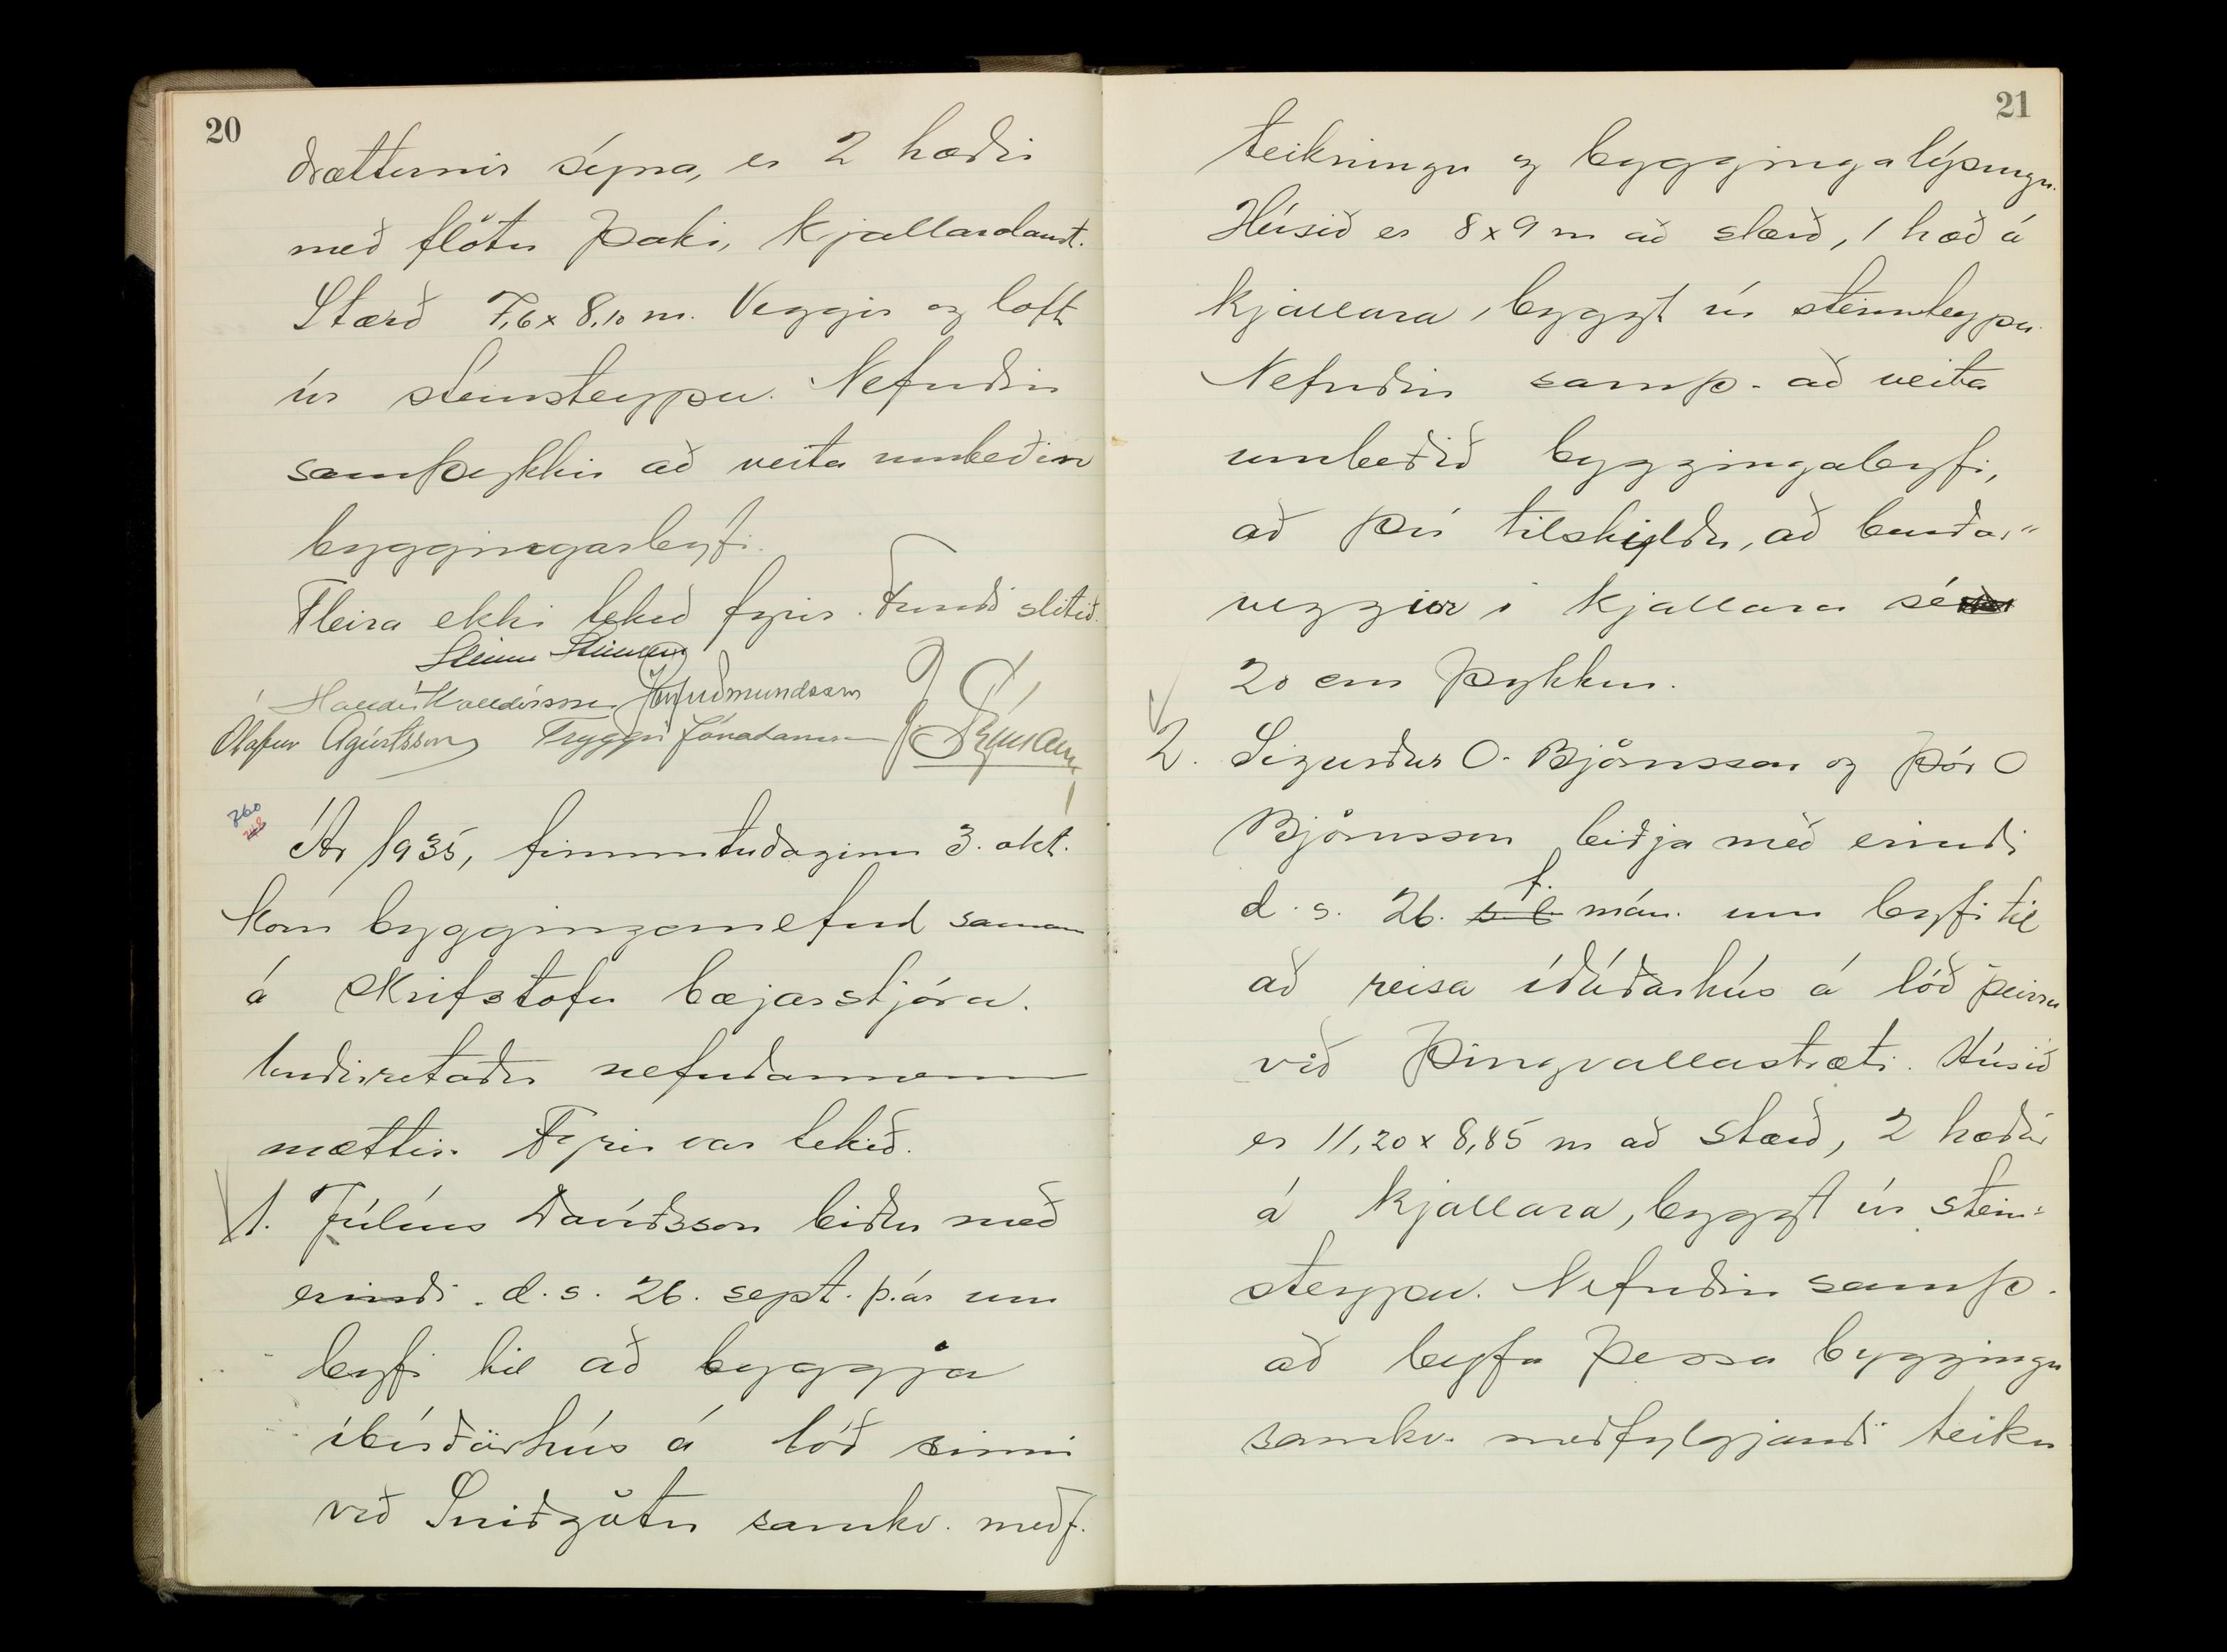 20
drættirnir sýna, er 2 hæðir
með flötu þaki, kjallaralaust.
Stærð 7,6 x 8,10 m. Veggir og loft
úr steinsteypu. Nefndin
samþykkir að veita umbeðin
byggingarleyfi.
Fleira ekki tekið fyrir. Fundi slitið.
Steinn Steinsen
Halldór Halldórsson Jón Guðmundsson
Ólafur Ágústsson Tryggvi Jónatansson
760
748
Ár 1935, fimmtudaginn 3. okt.
kom bygginganefnd saman
á skrifstofu bæjarstjóra.
Undirritaðir nefndarmenn
mættir. Fyrir var tekið.
1. Júlíus Davíðsson biður með
erindi d. s. 26. sept. þ. ár um
leyfi til að byggja
íbúðarhús á lóð sinni
við Sniðgötu samkv. meðf.
21
teikningu og byggingalýsingu.
Húsið er 8 x 9 m að stærð, 1 hæð á
kjallara, byggt úr steinsteypu
Nefndin samþ. að veita
umbeðið byggingaleyfi,
að því tilskyldu, að burðar"
veggir í kjallara sé
20 cm þykkur.
2. Sigurður O. Björnsson og Þór O
Björnsson beiðja með erindi
d. s. 26. s. l. f. mán. um leyfi til
að reisa íbúðarhús á lóð þeirra
við Þingvallastræti. Húsið
er 11,20 x 8,85 m að stærð, 2 hæðir
á kjallara, byggt úr stein=
steypu. Nefndin samþ.
að leyfa þessa byggingu
samkv. meðfylgjandi teikn